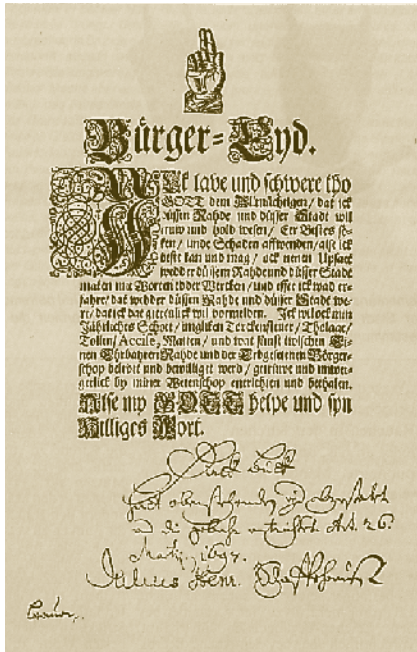 Bürger-Eyd.
Ick lave und schwere tho
GOTT dem Allmächtigen / dat ick
düssen Rahde und düsser Stadt wil
truw und hold wesen / Eer Bestes sö-
ken / unde Schaden affwenden / alse ick
beste kan und mag / ock nenen Upsaet
wedder düssem Rahde und düsser Stadt
maken mit Worten edder Wercken / und effte ick wad er-
fahre / dat wedder düssen Rahde und düsser Stadt we-
re / dat ick dat getrulick wil vormelden. Ick wil ock min
Jährliches Schott / imgliken Törckenstuer / Tholage /
Tollen / Accise, Matten / und wat sünst twischen Ei-
nen Ehrbahren Rahde und der Erbgesetenen Börger-
schop belevet und bewilliget werd / getrüw und unwei-
gerlick by miner Wetenschop entrichten und bethalen.
Alse my GOTT helpe und syn
Hilliges Wort.
hat obenstehenden Eyd
und die
1697.
Julius Henr.